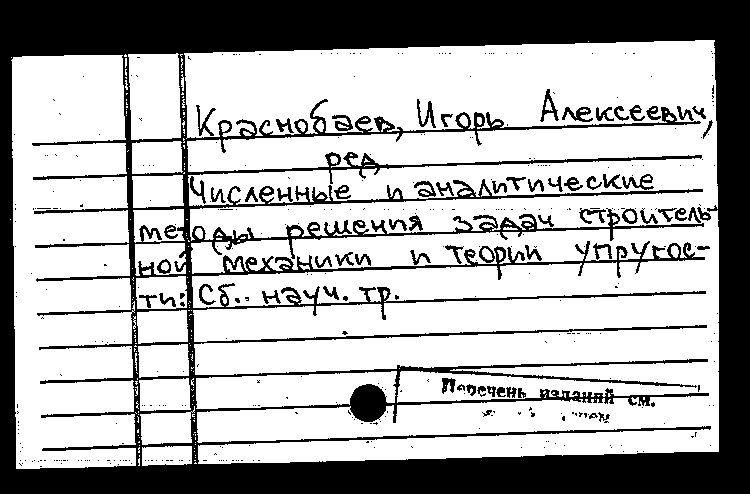 Краснобаев, Игорь Алексеевич,
ред.
Численные и аналитические
методы решения задач строитель-
ной механики и теории упругос-
ти: Сб.. науч. тр.
Перечень изданий см.